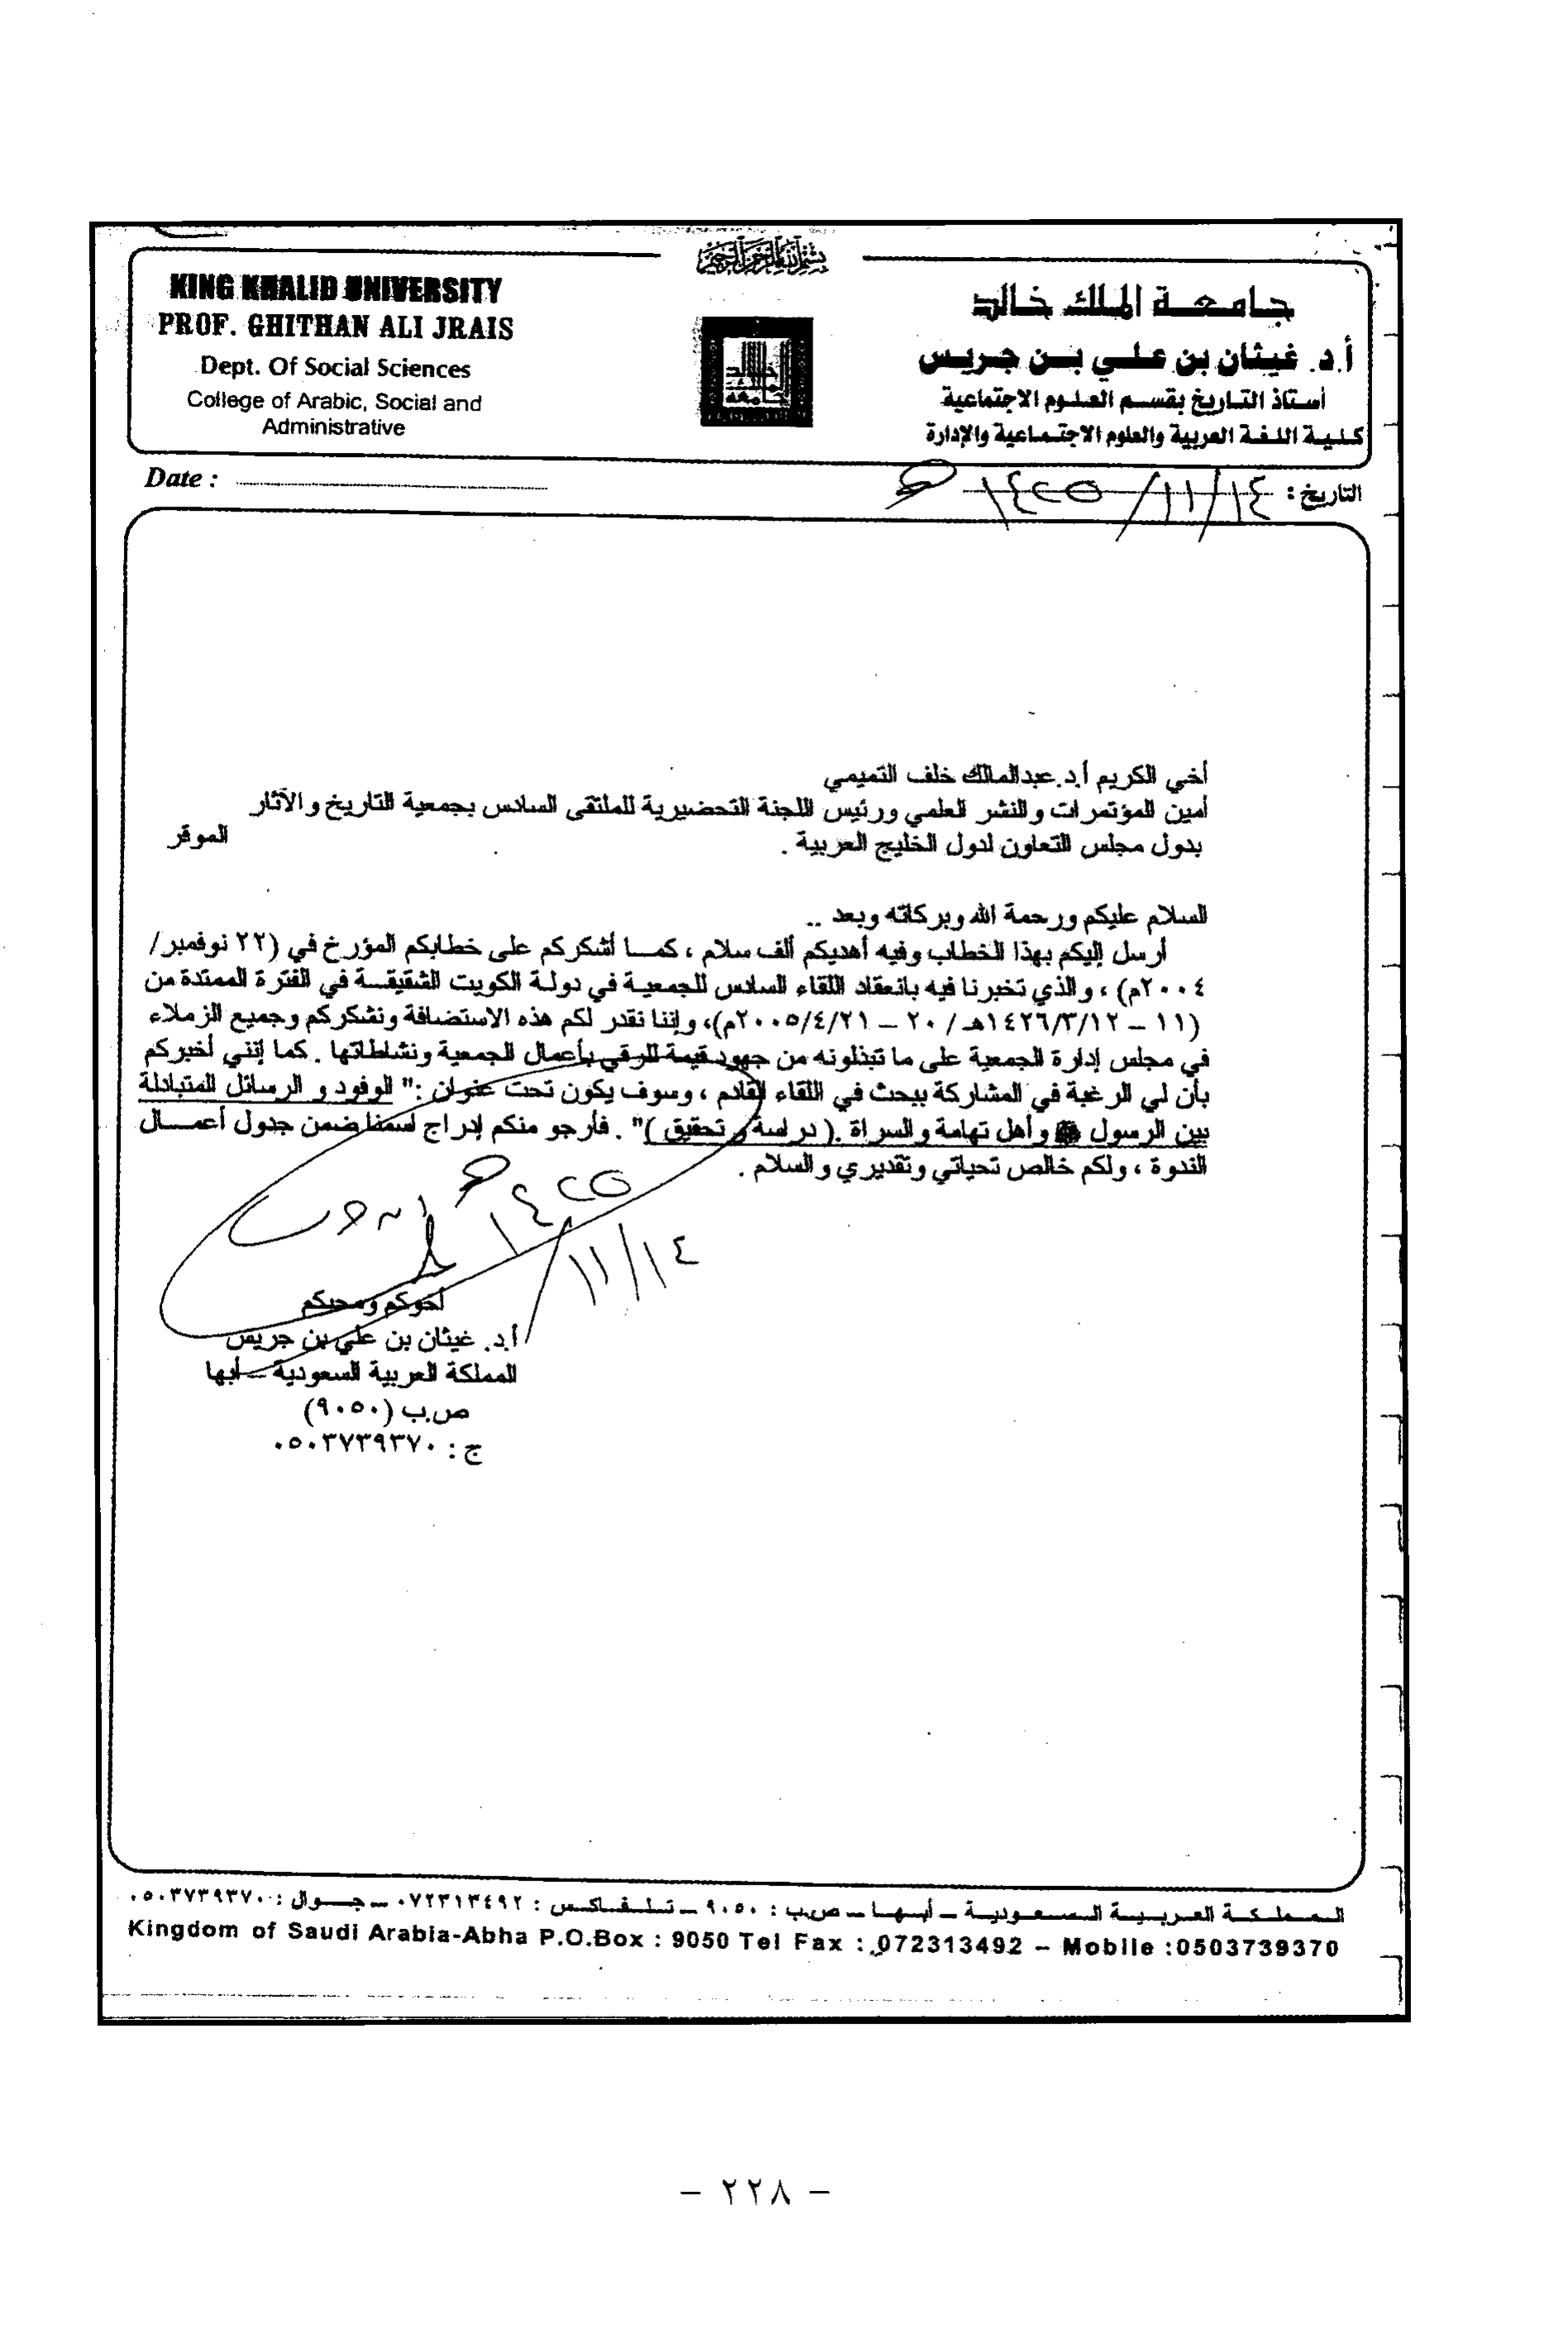 بسم الله الرحمن الرحيم
KING KHALID UNIVERSITY
PROF. GHITHAN ALI JRAIS
Dept. Of Social Sciences
College of Arabic, Social and
Administrative
جامعة الملك خالد
أ.د. غيثان بن علي بن جريس
أستاذ التاريخ بقسم العلوم الاجتماعية
كلية اللغة العربية والعلوم الاجتماعية والإدارة
Date :
التاريخ : ١٤/١١/١٤٢٥هـ
أخي الكريم أ.د.عبدالمالك خلف التميمي
أمين المؤتمرات والنشر العلمي ورئيس اللجنة التحضيرية للملتقى السادس بجمعية التاريخ والآثار
بدول مجلس التعاون لدول الخليج العربية . الموقر
السلام عليكم ورحمة الله وبركاته وبعد ..
أرسل إليكم بهذا الخطاب وفيه أهديكم ألف سلام ، كما أشكركم على خطابكم المؤرخ في (٢٢ نوفمبر/
٢٠٠٤م) ، والذي تخبرنا فيه بانعقاد اللقاء السادس للجمعية في دولة الكويت الشقيقة في الفترة الممتدة من
(١١ – ١٤٢٦/٣/١٢هـ / ٢٠ – ٢٠٠٥/٤/٢١م)، وإننا نقدر لكم هذه الاستضافة ونشكركم وجميع الزملاء
في مجلس إدارة الجمعية على ما تبذلونه من جهود قيمة للرقي بأعمال الجمعية ونشاطاتها . كما إنني أخبركم
بأن لي الرغبة في المشاركة ببحث في اللقاء القادم ، وسوف يكون تحت عنوان :" الوفود و الرسائل المتبادلة
بين الرسول ﷺ وأهل تهامة والسراة .( دراسة و تحقيق )" . فأرجو منكم إدراج اسمنا ضمن جدول أعمال
الندوة ، ولكم خالص تحياتي وتقديري والسلام .
١٤/١١/١٤٢٥هـ
أخوكم ومحبكم
أ.د. غيثان بن علي بن جريس
المملكة العربية السعودية – أبها
ص.ب (٩٠٥٠)
ج : ٠٥٠٣٧٣٩٣٧٠
المملكة العربية السعودية – أبها – ص.ب : ٩٠٥٠ – تلفاكس : ٠٧٢٣١٣٤٩٢ – جوال : ٠٥٠٣٧٣٩٣٧٠
Kingdom of Saudi Arabia-Abha P.O.Box : 9050 Tel Fax : 072313492 – Mobile :0503739370
– ٢٢٨ –